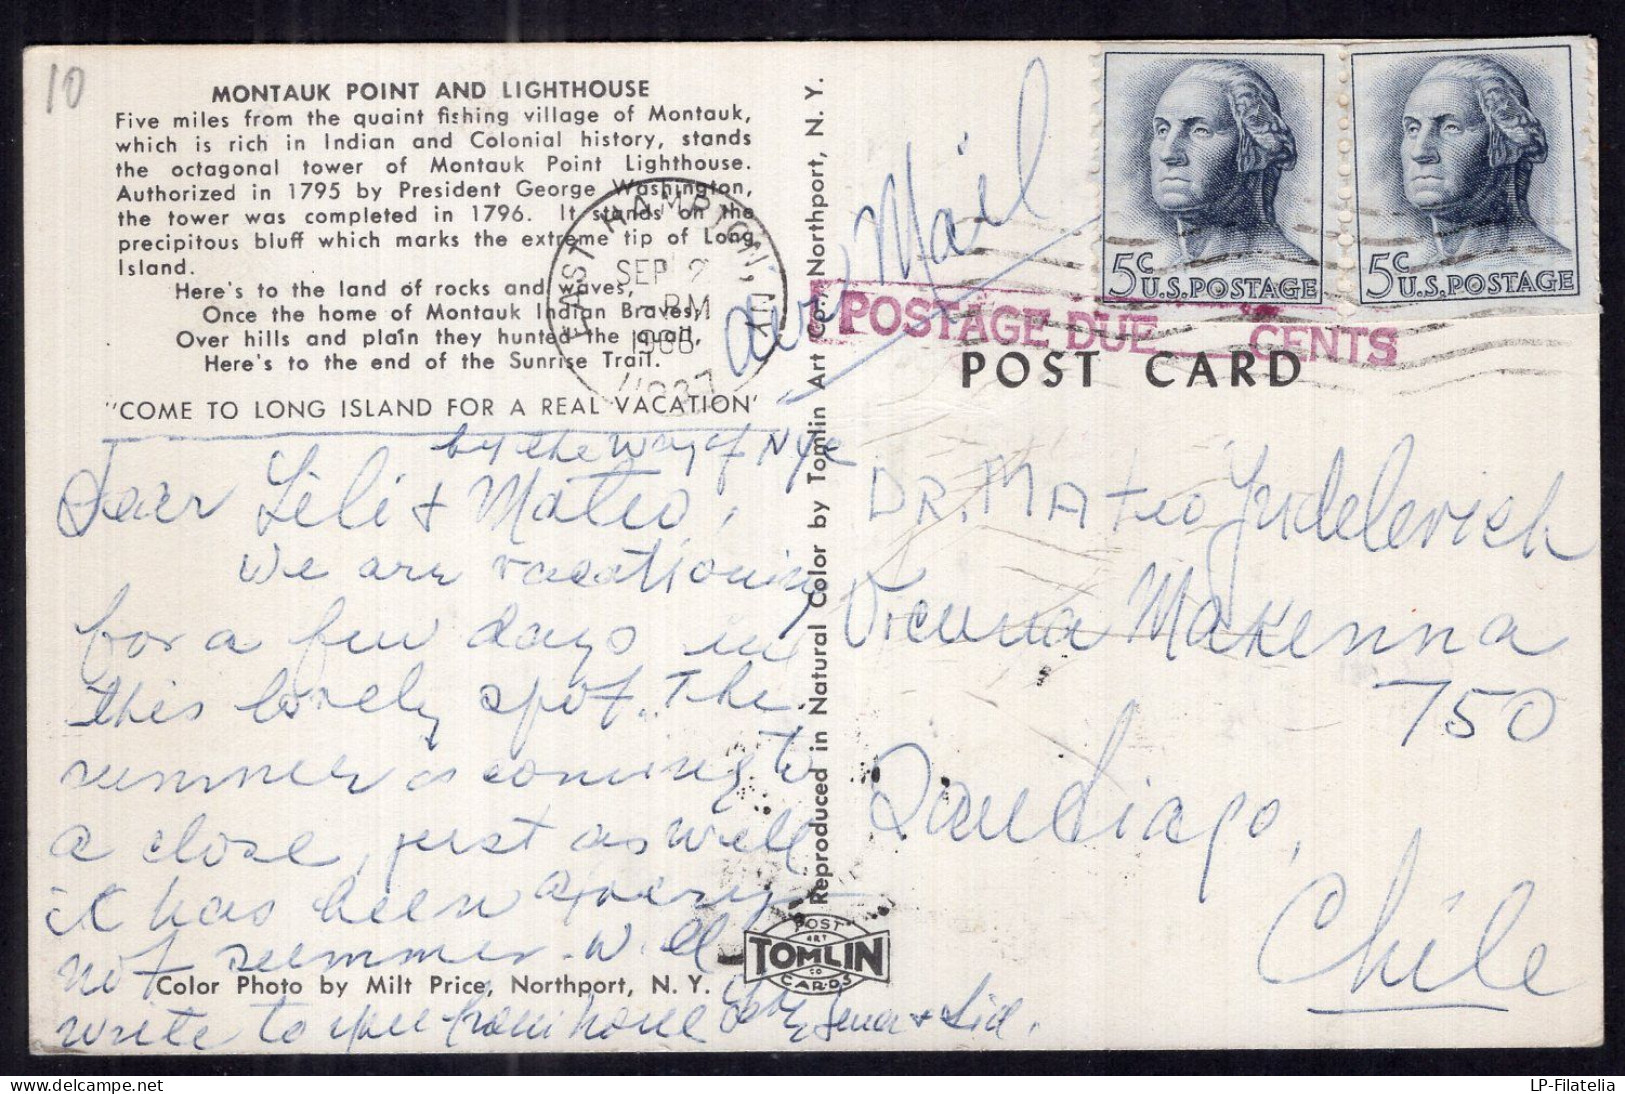 10
MONTAUK POINT AND LIGHTHOUSE
Five miles from the quaint fishing village of Montauk,
which is rich in Indian and Colonial history, stands
the octagonal tower of Montauk Point Lighthouse.
Authorized in 1795 by President George Washington,
the tower was completed in 1796. It stands on the
precipitous bluff which marks the extreme tip of Long
Island.
Here's to the land of rocks and waves,
Once the home of Montauk Indian Braves,
Over hills and plain they hunted the quail,
Here's to the end of the Sunrise Trail.
"COME TO LONG ISLAND FOR A REAL VACATION"
EAST HAMPTON, N.Y.
SEP 2
PM
11937
by the way of
Dear Lili & Mateo,
We are vacationing
for a few days in
this lovely spot. The
summer is coming to
a close, just as well
it has been a very
hot summer. Will
write to you from home Love, Lena & Sid.
Color Photo by Milt Price, Northport, N. Y.
Reproduced in Natural Color by Tomlin Art Co., Northport, N. Y.
POST
ART
TOMLIN
CO
CARDS
Air Mail
5c
U.S. POSTAGE
5c
U.S. POSTAGE
POSTAGE DUE CENTS
POST CARD
DR. Mateo Yudelevich
Vicuna Makenna
750
Santiago,
Chile
LP-Filatelia